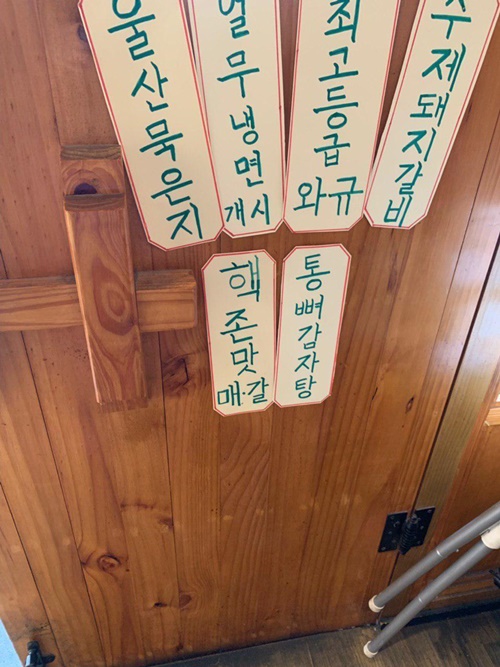 울산묵은지
열무냉면개시
최고등급와규
수제돼지갈비
핵존맛매갈
통뼈감자탕